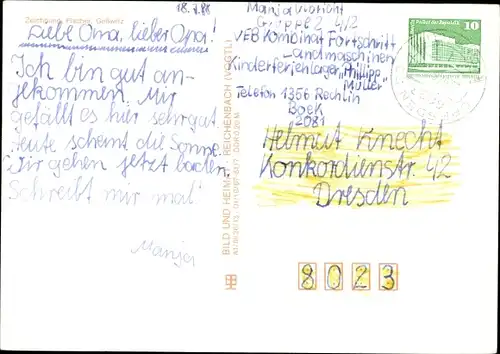 18.7.88
Zeichnung: Fischer, Gelbwitz
Liebe Oma, lieber Opa!
Ich bin gut an-
gekommen. Mir
gefällt es hier sehr gut.
Heute scheint die Sonne.
Wir gehen jetzt baden.
Schreibt mir mal
Manja
BILD UND HEIMAT REICHENBACH (VOGTL)
Manja
Gruppe 2 4/2
VEB Kombinat Fortschritt
Landmaschinen
Kinderferienlager "Phillipp
Müller"
Telefon 1356 Rechlin
Boek
12081
Palast der Republik
10
DDR
Helmut Knecht
Konkordienstr. 42
Dresden
8023